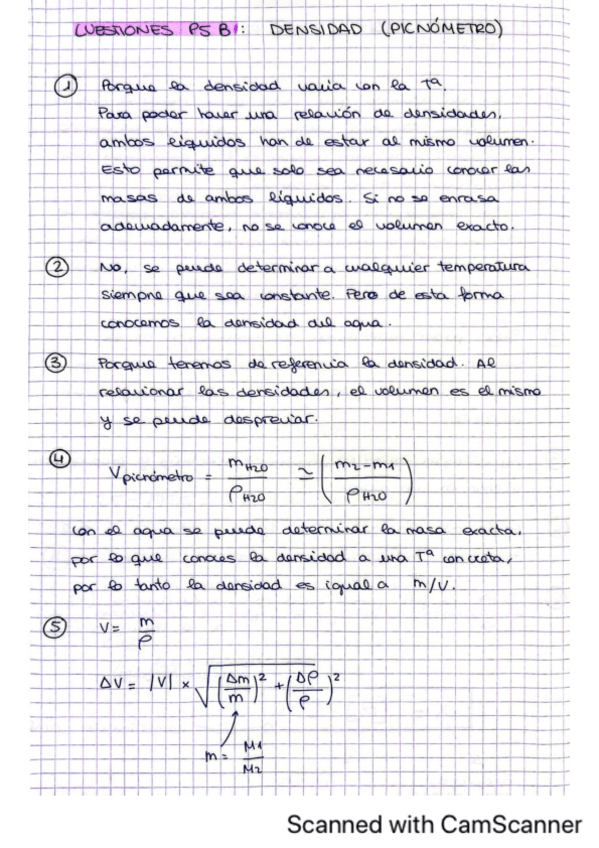 CUESTIONES P5 B: DENSIDAD (PICNÓMETRO)
① Porque la densidad varia con la Tª.
Para poder hacer una relación de densidades,
ambos liquidos han de estar al mismo volumen.
Esto permite que solo sea necesario conocer las
masas de ambos líquidos. Si no se enrasa
adecuadamente, no se conoce el volumen exacto.
② No, se puede determinar a cualquier temperatura
siempre que sea constante. Pero de esta forma
conocemos la densidad del agua.
③ Porque tenemos de referencia la densidad. Al
relacionar las densidades, el volumen es el mismo
y se puede despreciar.
④ V picnómetro = m H2O / ρ H2O ≃ ( m2-m1 / ρ H2O )
Con el agua se puede determinar la masa exacta,
por lo que conoces la densidad a una Tª concreta,
por lo tanto la densidad es igual a m/V.
⑤ V = m / ρ
ΔV = |V| × √ (Δm / m)² + (Δρ / ρ)²
m = M1 / M2
Scanned with CamScanner